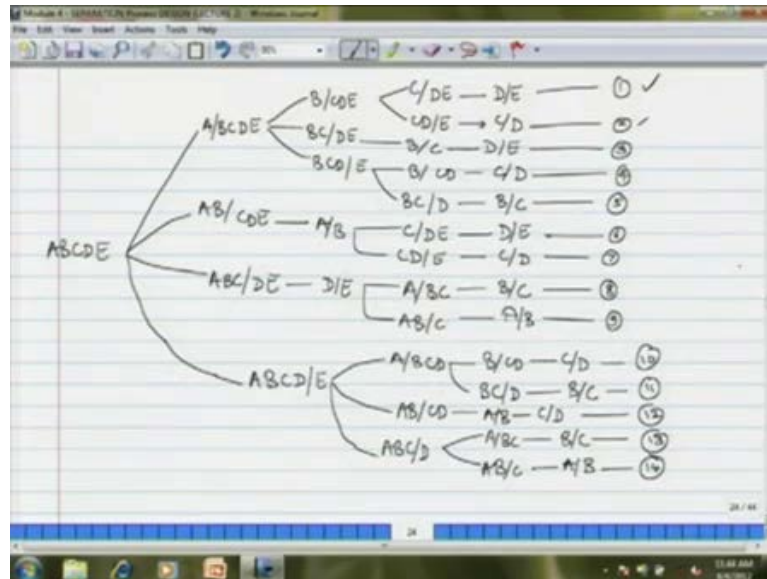 Module 4 - SEPARATION Process DESIGN (LECTURE 2) - Windows Journal
File Edit View Insert Actions Tools Help
B/CDE C/DE — D/E — ① ✓
A/BCDE CD/E → C/D — ②
BC/DE — B/C — D/E — ③
BCD/E B/CD — C/D — ④
BC/D — B/C — ⑤
AB/CDE — A/B C/DE — D/E — ⑥
ABCDE CD/E — C/D — ⑦
ABC/DE — D/E A/BC — B/C — ⑧
AB/C — A/B — ⑨
ABCD/E A/BCD B/CD — C/D — ⑩
BC/D — B/C — ⑪
AB/CD — A/B — C/D — ⑫
ABC/D A/BC — B/C — ⑬
AB/C — A/B — ⑭
24 / 44
24
11:44 AM